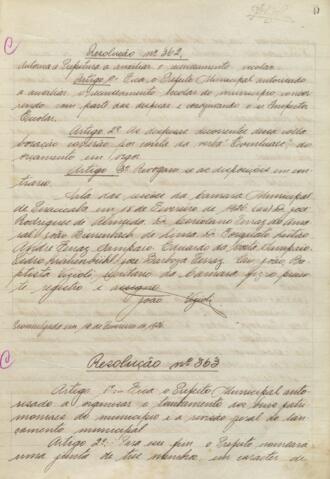 Resolução nº 362
Autorisa a Prefeitura a auxiliar o recenseamento escolar
Artigo 1º Fica o Prefeito Municipal autorisado
a auxiliar o recenseamento escolar do municipio concor
rendo com parte das despesas
Escolar.
Artigo 2º As despesas decorrentes desta
correrão por conta da verba "Eventuaes" do
orçamento em vigor.
Artigo 3º Revogam-se as disposições em con
trario.
Sala das sessões da Camara Municipal
de Piracicaba, em 15 de Fevereiro de 1926.
Rodrigues de Almeida, Dr. Coriolano Ferraz do Ama
ral, João de Lima,
André Ferraz Sampaio, Eduardo da Costa Sampaio,
Pedro Krähenbühl, José Barboza Ferraz. Eu, João Ba
ptista Vizioli, secretario da Camara fiz o presen
te registro e assigno
João Vizioli
Promulgada em 18 de Fevereiro de 1926.
Resolução nº 363
Artigo 1º - Fica o Prefeito Municipal auto
risado a organisar o tombamento dos bens patri
moniaes do municipio e a revisão geral do lan
çamento municipal
Artigo 2º - Para esse fim o Prefeito nomeará
uma junta de tres membros, em caracter de